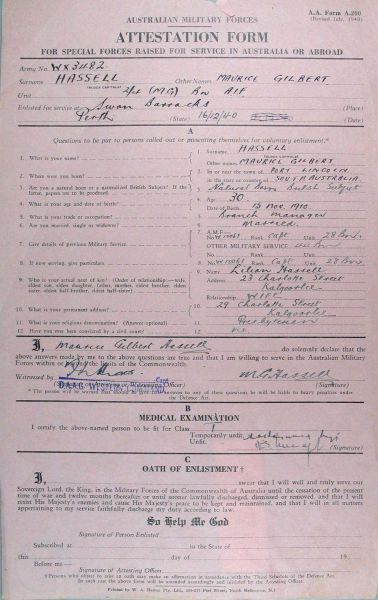 A.A. Form A.200
(Revised July, 1940)
AUSTRALIAN MILITARY FORCES
ATTESTATION FORM
FOR SPECIAL FORCES RAISED FOR SERVICE IN AUSTRALIA OR ABROAD
Army No. WX3482
Surname HASSELL Other Names MAURICE GILBERT
(BLOCK CAPITALS)
Unit (MG) Bn AIF
Enlisted for service at Swan Barracks (Place)
Perth (State) 16/12/40 (Date)
A
Questions to be put to persons called out or presenting themselves for voluntary enlistment.*
1. What is your name? 1. Surname HASSELL
(BLOCK CAPITALS)
Other names MAURICE GILBERT
2. Where were you born? 2. In or near the town of PORT LINCOLN
in the state or country of SOUTH AUSTRALIA
3. Are you a natural born or a naturalized British Subject? If the latter, papers are to be produced 3. Natural Born British Subject
4. What is your age and date of birth? 4. Age 30
Date of Birth 15 NOV. 1910
5. What is your trade or occupation? 5. Branch Manager
6. Are you married, single or widower? 6. Married
7. Give details of previous Military Service. 7. A.M.F.
No. Rank Capt Unit 28 Bn
OTHER MILITARY SERVICE
8. If now serving, give particulars 8. No. Rank Capt Unit 28 Bn
9. Who is your actual next of kin? (Order of relationship—wife, eldest son, eldest daughter, father, mother, eldest brother, eldest sister, eldest half-brother, eldest half-sister) 9. Name Lilian Hassell
Address 29 Charlotte Street
Kalgoorlie
Relationship WIFE
10. What is your permanent address? 10. 29 Charlotte Street
Kalgoorlie
11. What is your religious denomination? (Answer optional) 11. Presbyterian
12. Have you ever been convicted by a civil court? 12. No
I, Maurice Gilbert Hassell do solemnly declare that the
above answers made by me to the above questions are true and that I am willing to serve in the Australian Military
Forces within or beyond the limits of the Commonwealth.
Witnessed by M G Hassell
Capt
DAAG
(Signature of Attesting or Witnessing Officer) (Signature)
* The person will be warned that should he give false answers to any of these questions he will be liable to heavy penalties under
the Defence Act.
B
MEDICAL EXAMINATION
I certify the above-named person to be fit for Class I
Temporarily unfit
Unfit.
(Signature)
C
OATH OF ENLISTMENT †
I, swear that I will well and truly serve our
Sovereign Lord, the King, in the Military Forces of the Commonwealth of Australia until the cessation of the present
time of war and twelve months thereafter or until sooner lawfully discharged, dismissed or removed, and that I will
resist His Majesty's enemies and cause His Majesty's peace to be kept and maintained, and that I will in all matters
appertaining to my service faithfully discharge my duty according to law.
So Help Me God
Signature of Person Enlisted
Subscribed at in the State of
this day of 19
Before me—
Signature of Attesting Officer
† Persons who object to take an oath may make an affirmation in accordance with the Third Schedule of the Defence Act.
In such case the above form will be amended accordingly and initialled by the Attesting Officer.